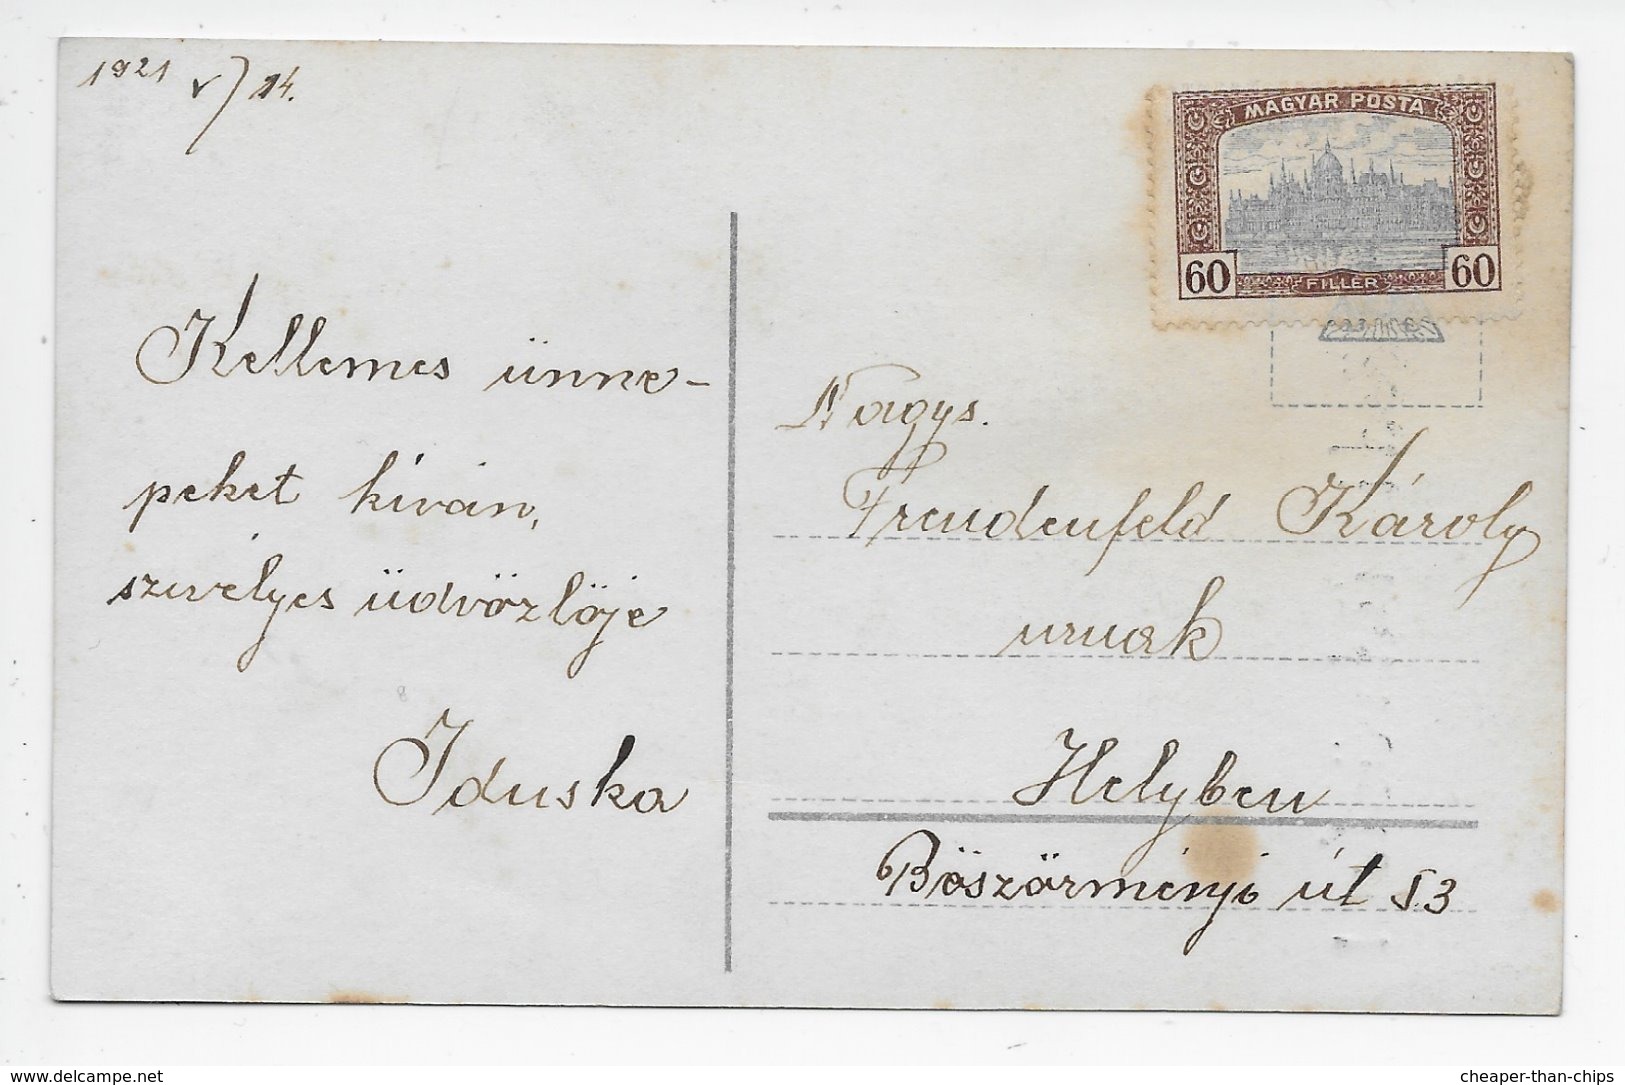 1921 V/14.
MAGYAR POSTA
60 60
FILLÉR
Kellemes ünne-
peket kíván,
szivélyes üdvözlője
Iduska
Nagys.
Freudenfeld Károly
urnak
Helyben
Böszörményi út 53
delcampe.net
cheaper-than-chips